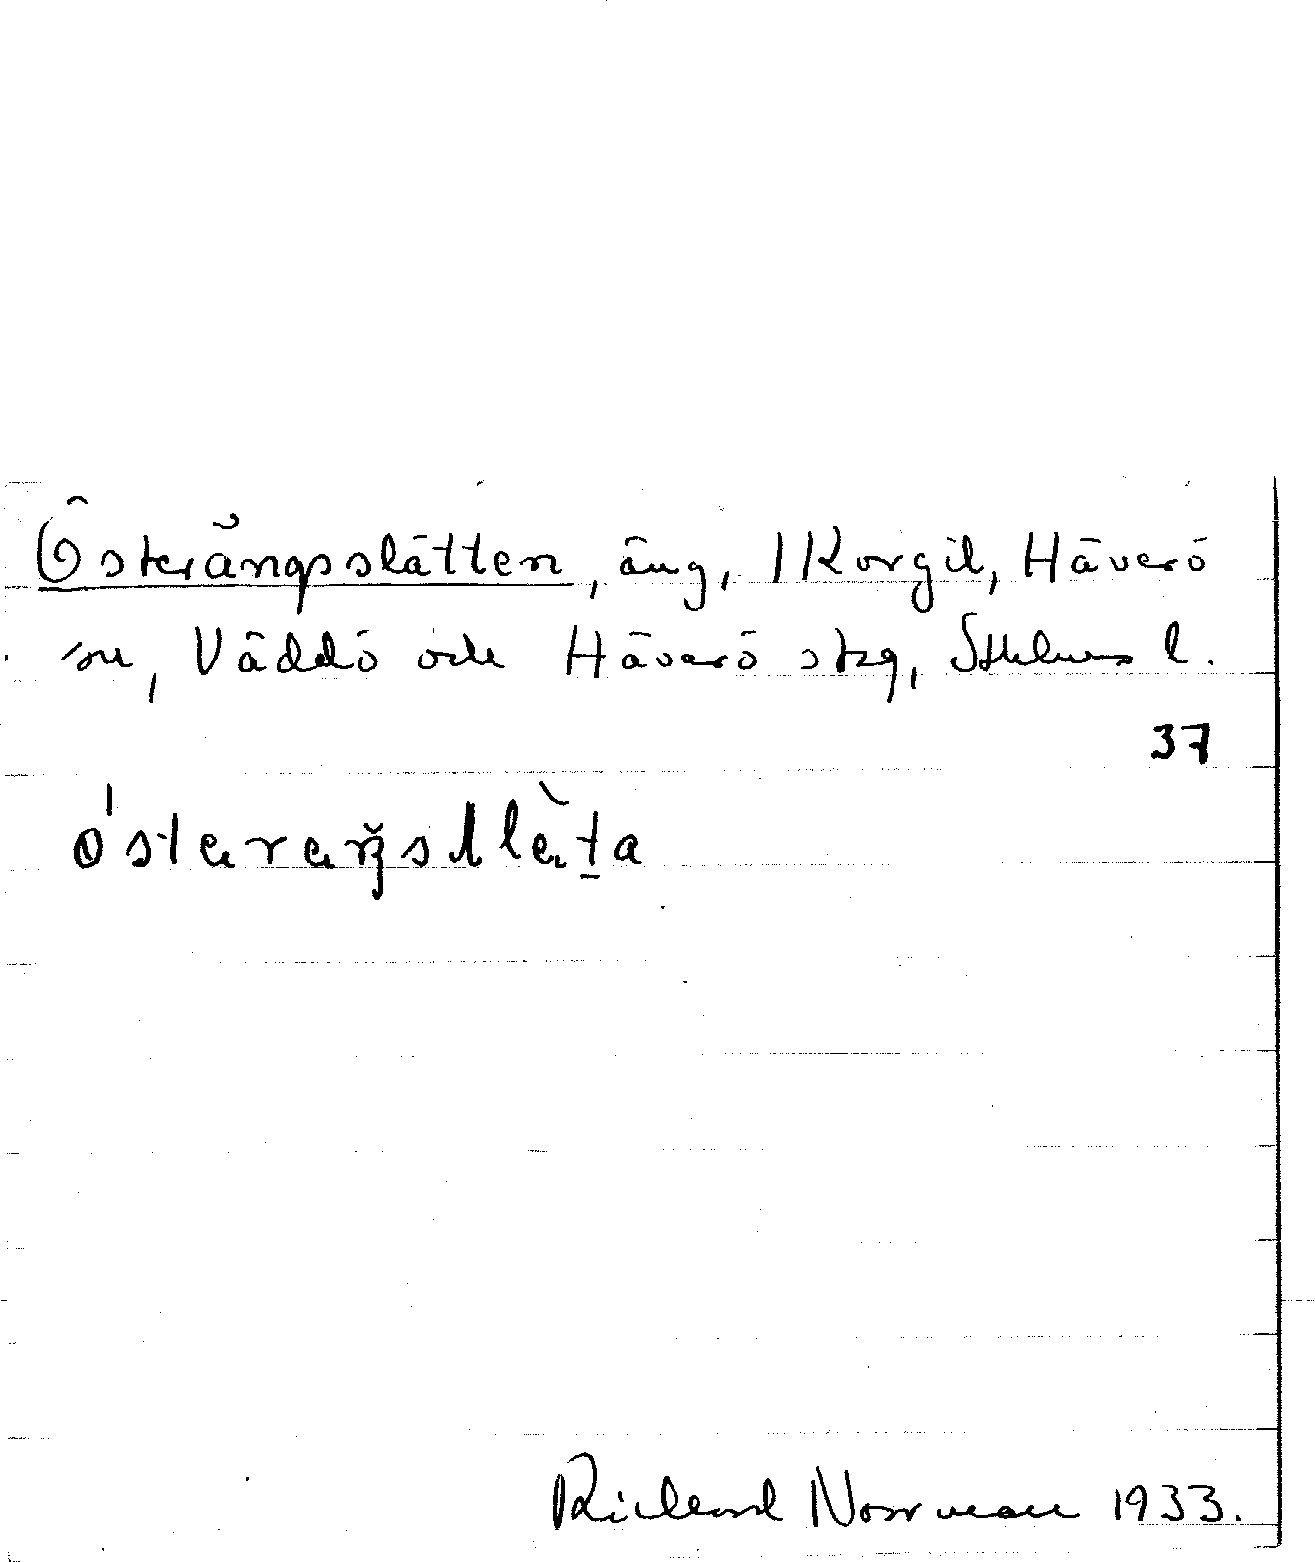 Österängsslätten, äng, 1 Korgil, Häverö
sn, Väddö och Häverö skg, Sthlms l.
37
Richard Norrman 1933.